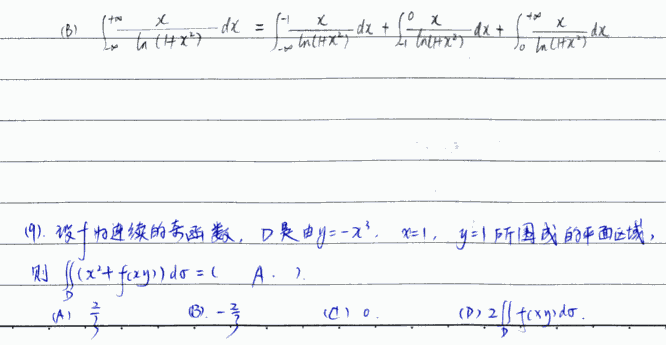 (B) ∫_{-∞}^{+∞} x/ln(1+x²) dx = ∫_{-∞}^{-1} x/ln(1+x²) dx + ∫_{-1}^{0} x/ln(1+x²) dx + ∫_{0}^{+∞} x/ln(1+x²) dx
(9). 设f为连续的奇函数, D是由y=-x³. x=1, y=1所围成的平面区域,
则 ∬_D (x²+f(xy))dσ = ( A. ).
(A) 2/3 (B). -2/3 (C) 0. (D) 2∬_D f(xy)dσ.